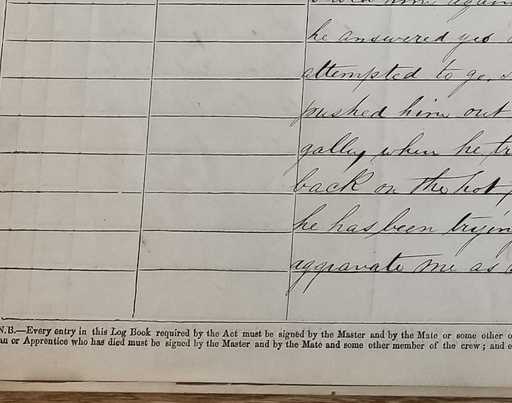 him again
he answered yes
attempted to go.
pushed him out
gally when he
back on the hot
he has been trying
aggravate me as
N.B.—Every entry in this Log Book required by the Act must be signed by the Master and by the Mate or some other
an or Apprentice who has died must be signed by the Master and by the Mate and some other member of the crew; and